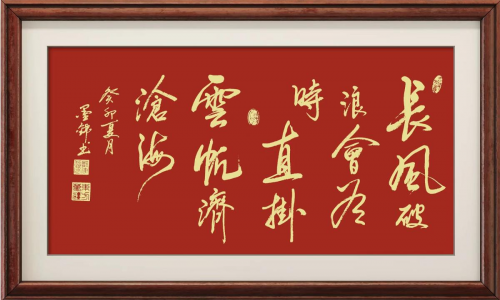 長風破
浪會有
時直掛
雲帆濟
滄海
癸卯夏月
墨锦书